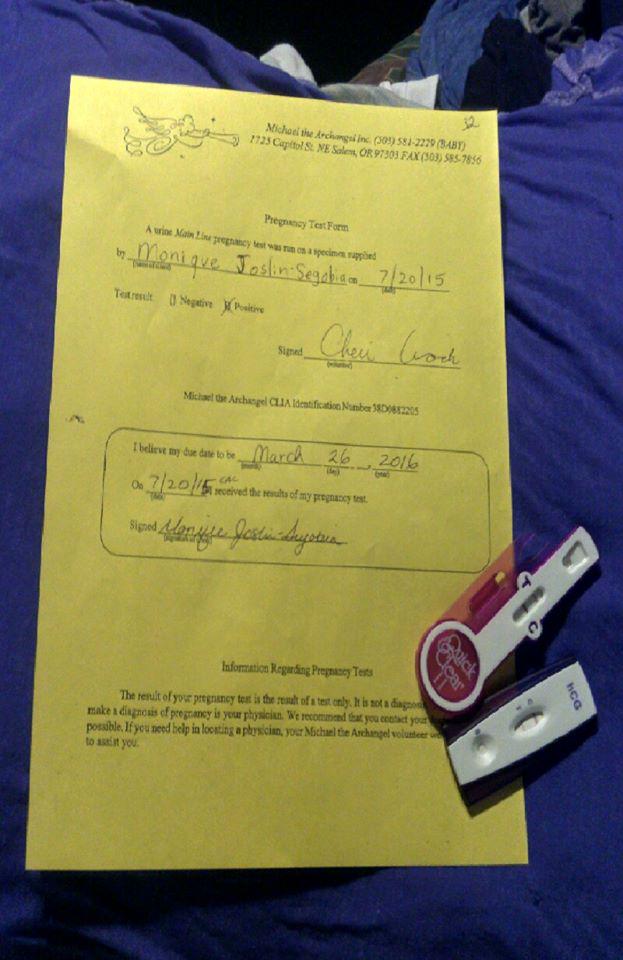 32
Michael the Archangel Inc. (503) 581-2229 (BABY)
1725 Capitol St. NE Salem, OR 97303 FAX (503) 585-7856
Pregnancy Test Form
A urine Main Line pregnancy test was run on a specimen supplied
by Monique Joslin-Segobia on 7/20/15
(date)
Test result: Negative Positive
Signed Cheri
(volunteer)
Michael the Archangel CLIA Identification Number 38D0882205
I believe my due date to be March 26, 2016
(month) (day) (year)
On 7/20/15 CAC I received the results of my pregnancy test.
(date)
Signed Monique Joslin-Segobia
Information Regarding Pregnancy Tests
The result of your pregnancy test is the result of a test only. It is not a diagnosis
make a diagnosis of pregnancy is your physician. We recommend that you contact your
possible. If you need help in locating a physician, your Michael the Archangel volunteer
to assist you.
T
C
Quick
Ear
hCG
C
T
S